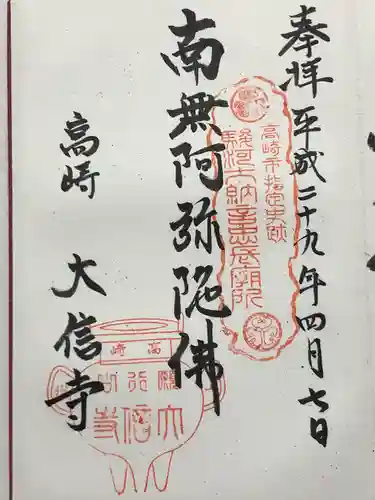 奉拝 平成二十九年四月七日
南無阿弥陀佛
高崎市指定史跡
駿河大納言忠長廟所
高崎 大信寺
高崎
大信寺